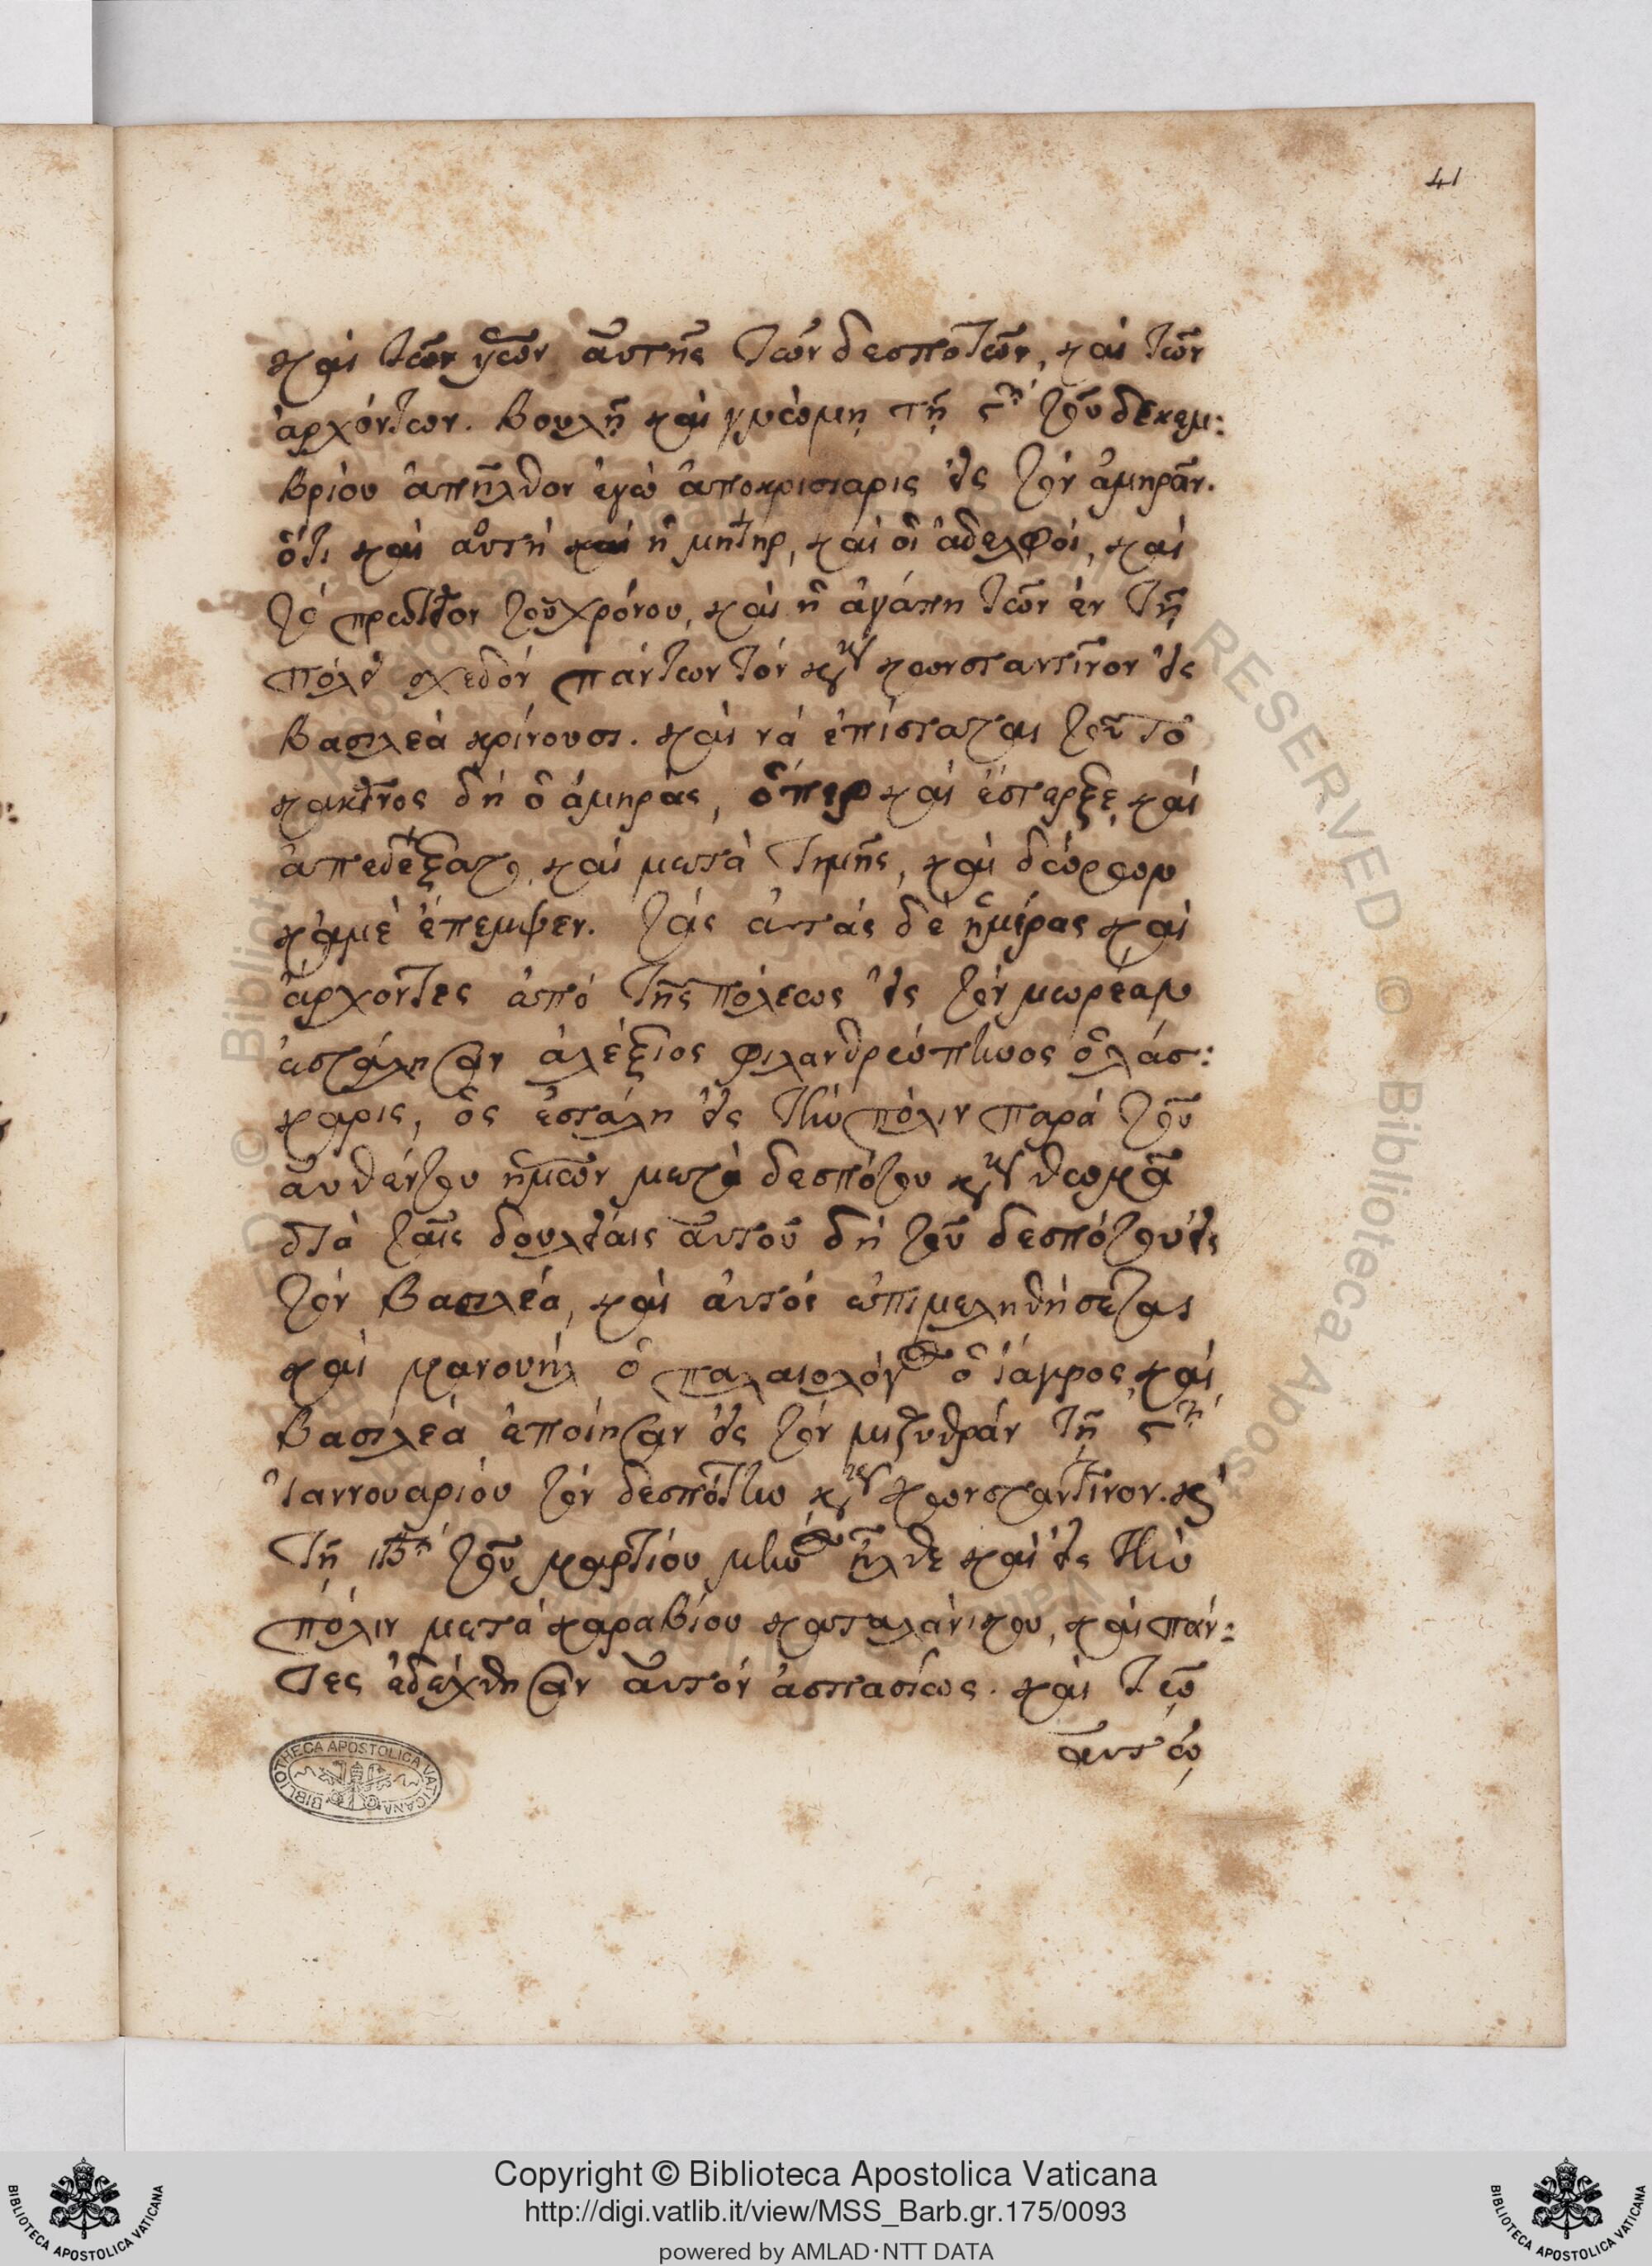 41
καὶ τῶν υἱῶν αὐτῆς τῶν δεσποτῶν, καὶ τῶν
ἀρχόντων. βουλῇ καὶ γνώμῃ τῇ ϛῃ τοῦ δεκεμ:
βρίου ἀπῆλθον ἐγὼ ἀποκρισιάρις εἰς τὸν ἀμηρᾶν.
ὅτι καὶ αὐτὴ καὶ ἡ μήτηρ, καὶ οἱ ἀδελφοί, καὶ
τὸ πρῶτον τοῦ χρόνου, καὶ ἡ ἀγάπη τῶν ἐν τῇ
πόλει σχεδόν πάντων τόν κὺρ κωνσταντῖνον εἰς
βασιλέα κρίνουσι. καὶ νὰ ἐπίσταται τοῦτο
κακεῖνος δὴ ὁ ἀμηρᾶς, ὅπερ καὶ ἔστερξε, καὶ
ἀπεδέξατο, καὶ μετὰ τιμῆς, καὶ δώρων
κἀμὲ ἔπεμψεν. τὰς αὐτὰς δὲ ἡμέρας καὶ
ἄρχοντες ἀπό τῆς πόλεως εἰς τὸν μωρέαν
ἐστάλησαν ἀλέξιος φιλανθρωπηνος ὁ λάσ:
καρις, ὃς ἐστάλη εἰς τὴν πόλιν παρὰ τοῦ
αὐθέντου ἡμῶν μετὰ δεσπότου κὺρ θωμᾶ
διὰ ταῖς δουλείαις αὐτοῦ δὴ τοῦ δεσπότου εἰς
τὸν βασιλέα, καὶ αὐτός ἐπιμεληθήσεται
καὶ μανουήλ ὁ παλαιολόγος ὁ ἰάγρος, καὶ
βασιλέα ἐποίησαν εἰς τὸν μιζυθράν τῇ ϛῃ
Ἰαννουαρίου τὸν δεσπότην κὺρ κωνσταντῖνον. καὶ
τῇ ιβῃ τοῦ μαρτίου μηνὸς ἦλθε καὶ εἰς τὴν
πόλιν μετὰ καραβίου καταλάνικου, καὶ πάν:
τες ἐδέχθησαν αὐτόν ἀσπασίως. καὶ τῷ
αὐτῷ
BIBLIOTHECA APOSTOLICA VATICANA
Copyright © Biblioteca Apostolica Vaticana
http://digi.vatlib.it/view/MSS_Barb.gr.175/0093
powered by AMLAD·NTT DATA
BIBLIOTECA APOSTOLICA VATICANA
BIBLIOTECA APOSTOLICA VATICANA